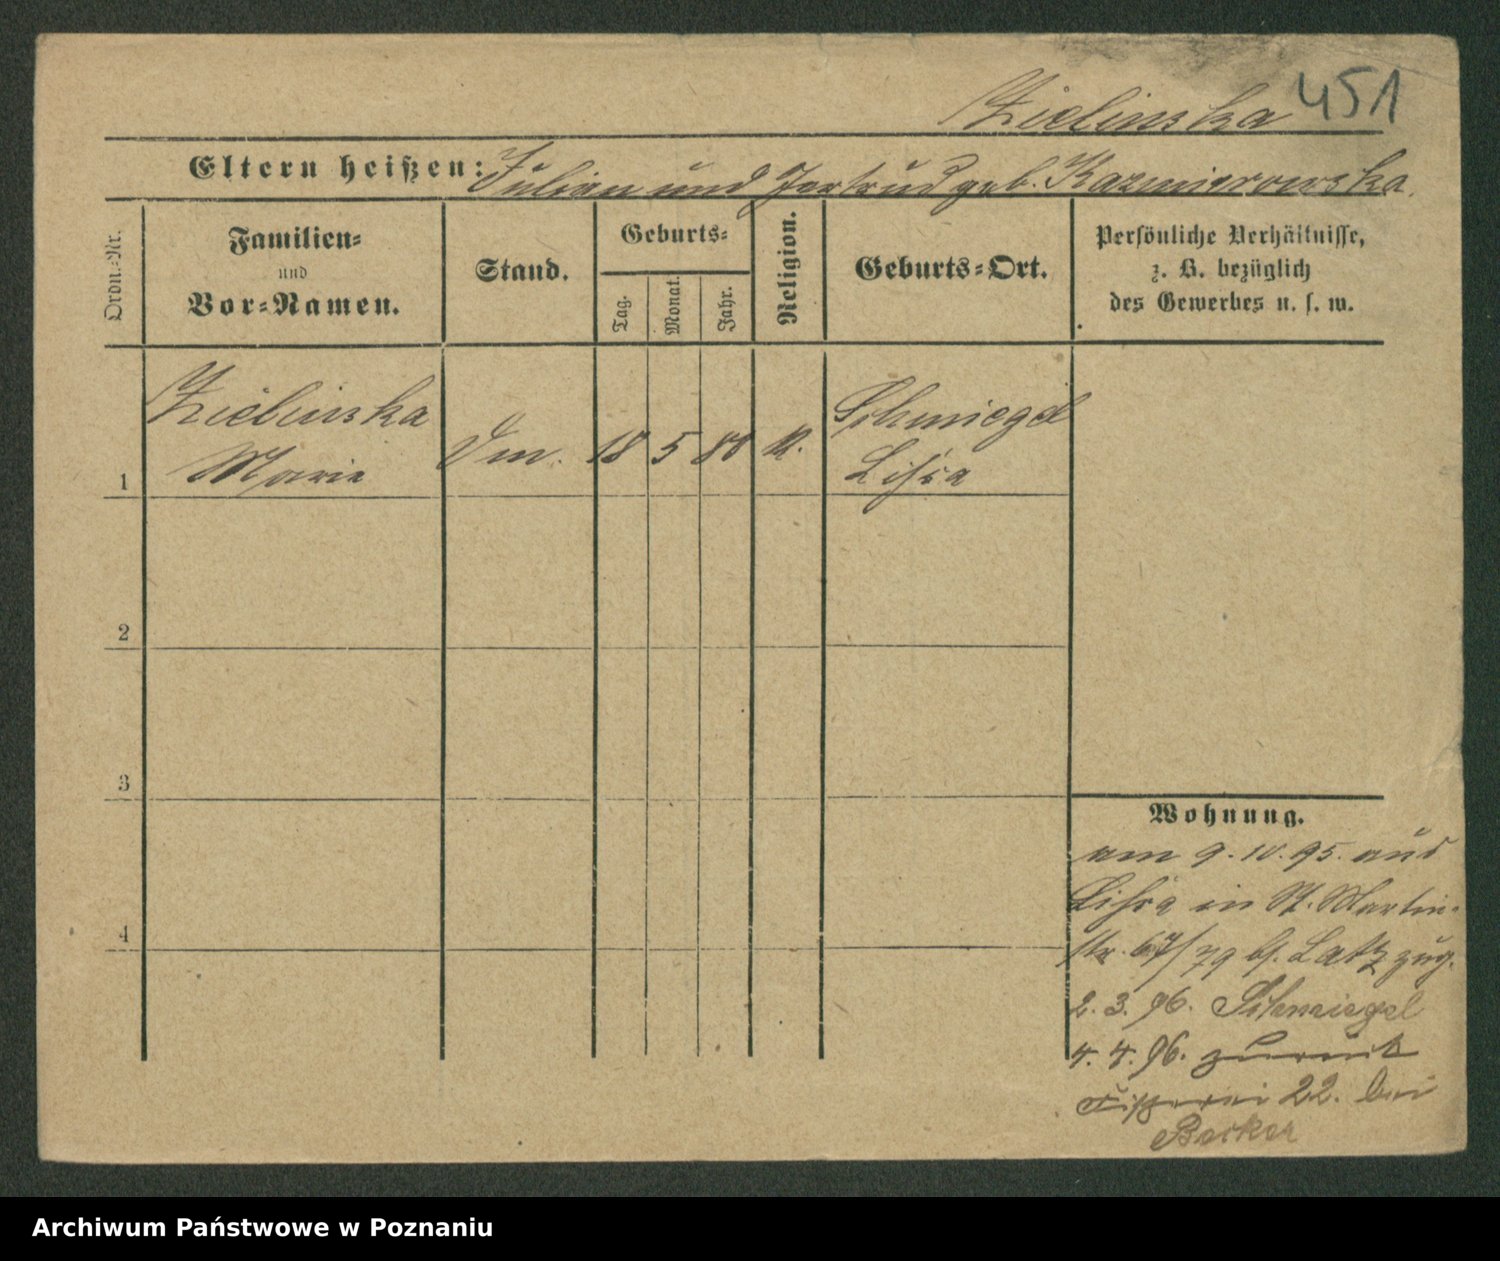 Zielinska 451
Eltern heißen: Julian und Gertrud geb. Kazmierowska.
Ordn.-Nr.
Familien-
und
Vor-Namen.
Stand.
Geburts-
Tag.
Monat.
Jahr.
Religion.
Geburts-Ort.
Persönliche Verhältnisse,
z. B. bezüglich
des Gewerbes u. s. w.
Zielinska
Marie
1
18 5 80 K.
Schmiegel
Lissa
2
3
4
Wohnung.
am 9. 10. 95. aus
Lissa in St. Martin-
str. 67/79 bei Latz zug.
2. 3. 96. Schmiegel
4. 4. 96. zurück
22. bei
Becker
Archiwum Państwowe w Poznaniu